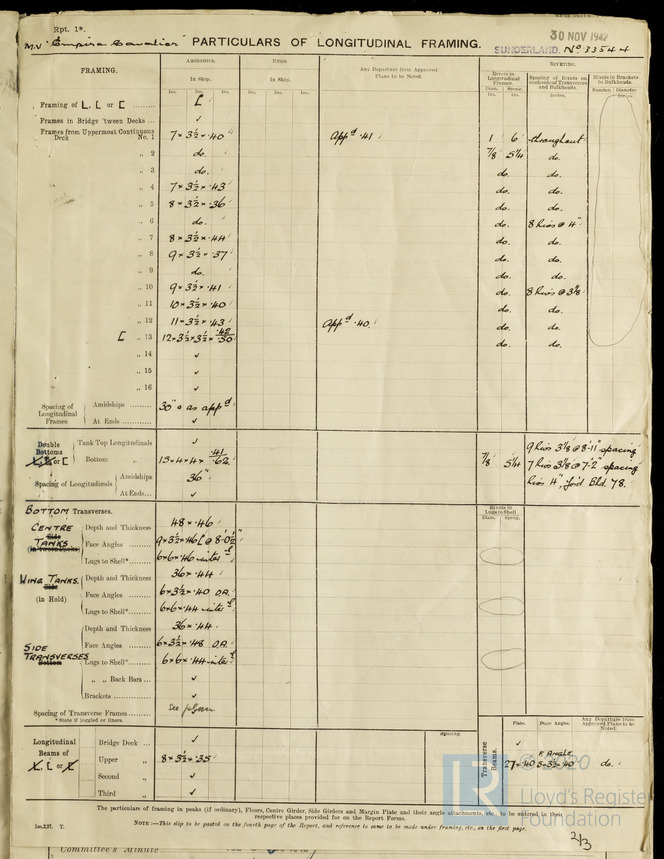 Rpt. 1*.
30 NOV 1942
M.V. Empire Cavalier PARTICULARS OF LONGITUDINAL FRAMING. SUNDERLAND. No 33544
FRAMING. AMIDSHIPS. ENDS. Any Departure from Approved Plans to be Noted. RIVETING.
In Ship. In Ship. Rivets in Longitudinal Frames. Spacing of Rivets on each side of Transverses and Bulkheads. Rivets in Brackets to Bulkheads.
Ins. Ins. Ins. Ins. Ins. Ins. Diam. Spcng. Inches. Number. Diameter
Framing of L, L or [ ......... [
Frames in Bridge 'tween Decks ... ✓
Frames from Uppermost Continuous Deck No. 1 7 × 3½ × .40 appd .41 1 6 throughout
„ 2 do. 7/8 5¼ do.
„ 3 do. do. do.
„ 4 7 × 3½ × .43 do. do.
„ 5 8 × 3½ × .36 do. do.
„ 6 do. do. 8 rivs @ 4"
„ 7 8 × 3½ × .44 do. do.
„ 8 9 × 3½ × .37 do. do.
„ 9 do. do. do.
„ 10 9 × 3½ × .41 do. 8 rivs @ 3⅛
„ 11 10 × 3½ × .40 do. do.
„ 12 11 × 3½ × .43 appd .40 do. do.
[ „ 13 12 × 3½ × 3½ × .42/.50 do. do.
„ 14 ✓
„ 15 ✓
„ 16 ✓
Spacing of Longitudinal Frames Amidships ......... 30" & as appd
At Ends ......... ✓
Double Bottoms L or [ Tank Top Longitudinals ✓
Bottom „ 15 × 4 × 4 × .41/.62 7/8 5¼ 9 rivs 3⅛ @ 8'-11" spacing
7 rivs 3⅛ @ 7'-2" spacing
rivs 4", for'd Bhd. 78.
Spacing of Longitudinals Amidships 36"
At Ends... ✓
BOTTOM Transverses. Rivets in Lugs to Shell
Diam. Spcng.
CENTRE TANKS Side (in 'tween Decks) Depth and Thickness 48 × .46
Face Angles 9 × 3½ × .46 [ @ 8'-0½"
Lugs to Shell* 6 × 6 × .46
WING TANKS. Side (in Hold) Depth and Thickness 36 × .44
Face Angles 6 × 3½ × .40 O.A.
Lugs to Shell* 6 × 6 × .44
SIDE TRANSVERSES Bottom Depth and Thickness 36 × .44
Face Angles 6 × 3½ × .48 O.A.
Lugs to Shell* 6 × 6 × .44
„ „ Back Bars ... ✓
Brackets ......... ✓
Spacing of Transverse Frames
*State if joggled or liners.
Longitudinal Beams of L, L or [ Bridge Deck ... ✓
Upper „ 8 × 3½ × .35
Second „ ✓
Third „ ✓
Spacing.
Transverse Beams. Plate. Face Angles. Any Departure from Approved Plans to be Noted.
✓
27 × .40 F. ANGLE 5 × 3½ × .40 do.
The particulars of framing in peaks (if ordinary), Floors, Centre Girder, Side Girders and Margin Plate and their angle attachments, etc., to be entered in their respective places provided for on the Report Forms.
NOTE:—This slip to be pasted on the fourth page of the Report, and reference to same to be made under framing, etc., on the first page.
2/3
© 2020
LR Lloyd's Register Foundation
Committee's Minute